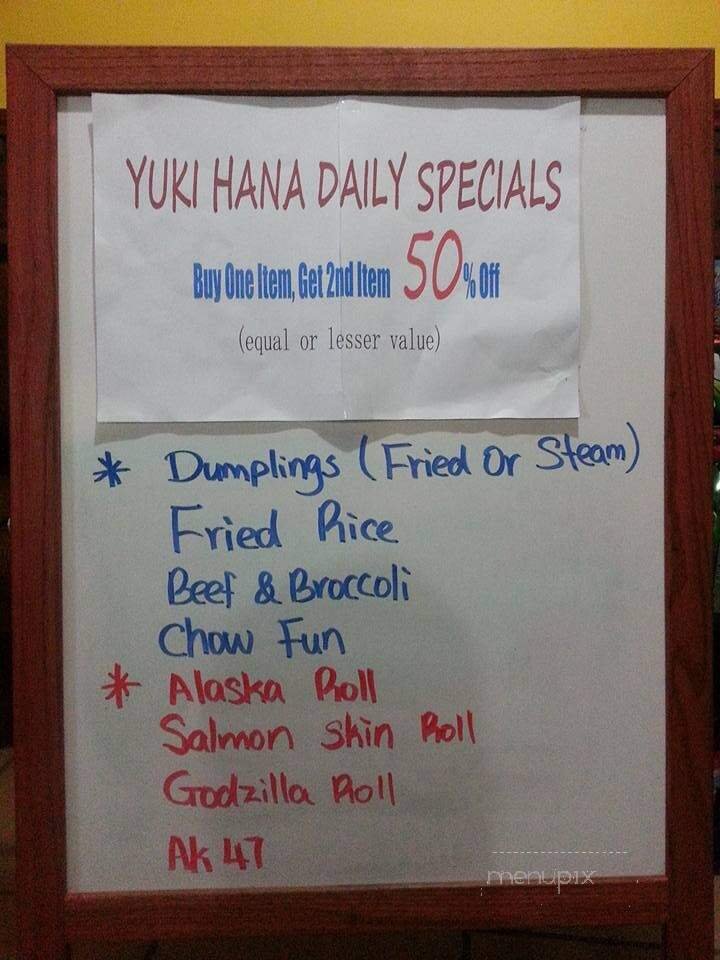 YUKI HANA DAILY SPECIALS
Buy One Item, Get 2nd Item 50% Off
(equal or lesser value)
* Dumplings (Fried Or Steam)
Fried Rice
Beef & Broccoli
Chow Fun
* Alaska Roll
Salmon skin Roll
Godzilla Roll
AK 47
menupix